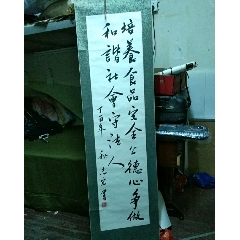 培養食品安全公德心争做
和諧社會守法人
丁酉年 秋 志宏書